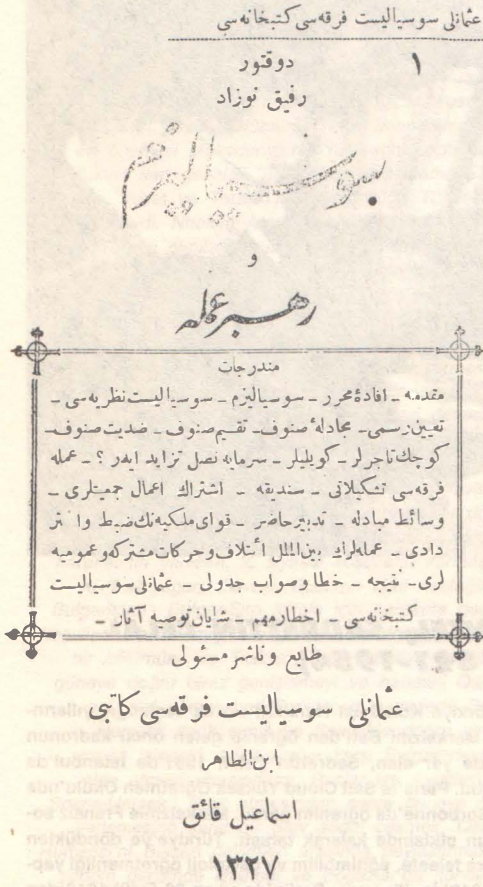 عثمانلى سوسياليست فرقه‌سى كتبخانه‌سى
١
دوقتور
رفيق نوزاد
سوسياليزم
و
رهبر عمله
مندرجات
مقدمه ـ افادهٔ محرر ـ سوسياليزم ـ سوسياليست نظريه‌سى ـ
تعيين رسمى ـ مجادلهٔ صنوف ـ تقسيم صنوف ـ ضديت صنوف ـ
كوچك تاجرلر ـ كويليلر ـ سرمايه نصل تزايد ايدر ؟ ـ عمله
فرقه‌سى تشكيلاتى ـ سنديقه ـ اشتراك اعمال جمعيتلرى ـ
وسائط مبادله ـ تدبير حاضر ـ قواى ملكيه‌نك ضبط و استر
دادى ـ عمله‌لرك بين الملل ائتلاف و حركات مشتركه و عموميه
لرى ـ نتيجه ـ خطا و صواب جدولى ـ عثمانلى سوسياليست
كتبخانه‌سى ـ اخطار مهم ـ شايان توصيه آثار ـ
طابع و ناشر مسئولى
عثمانلى سوسياليست فرقه‌سى كاتبى
ابن الطاهر
اسماعيل فائق
١٣٢٧